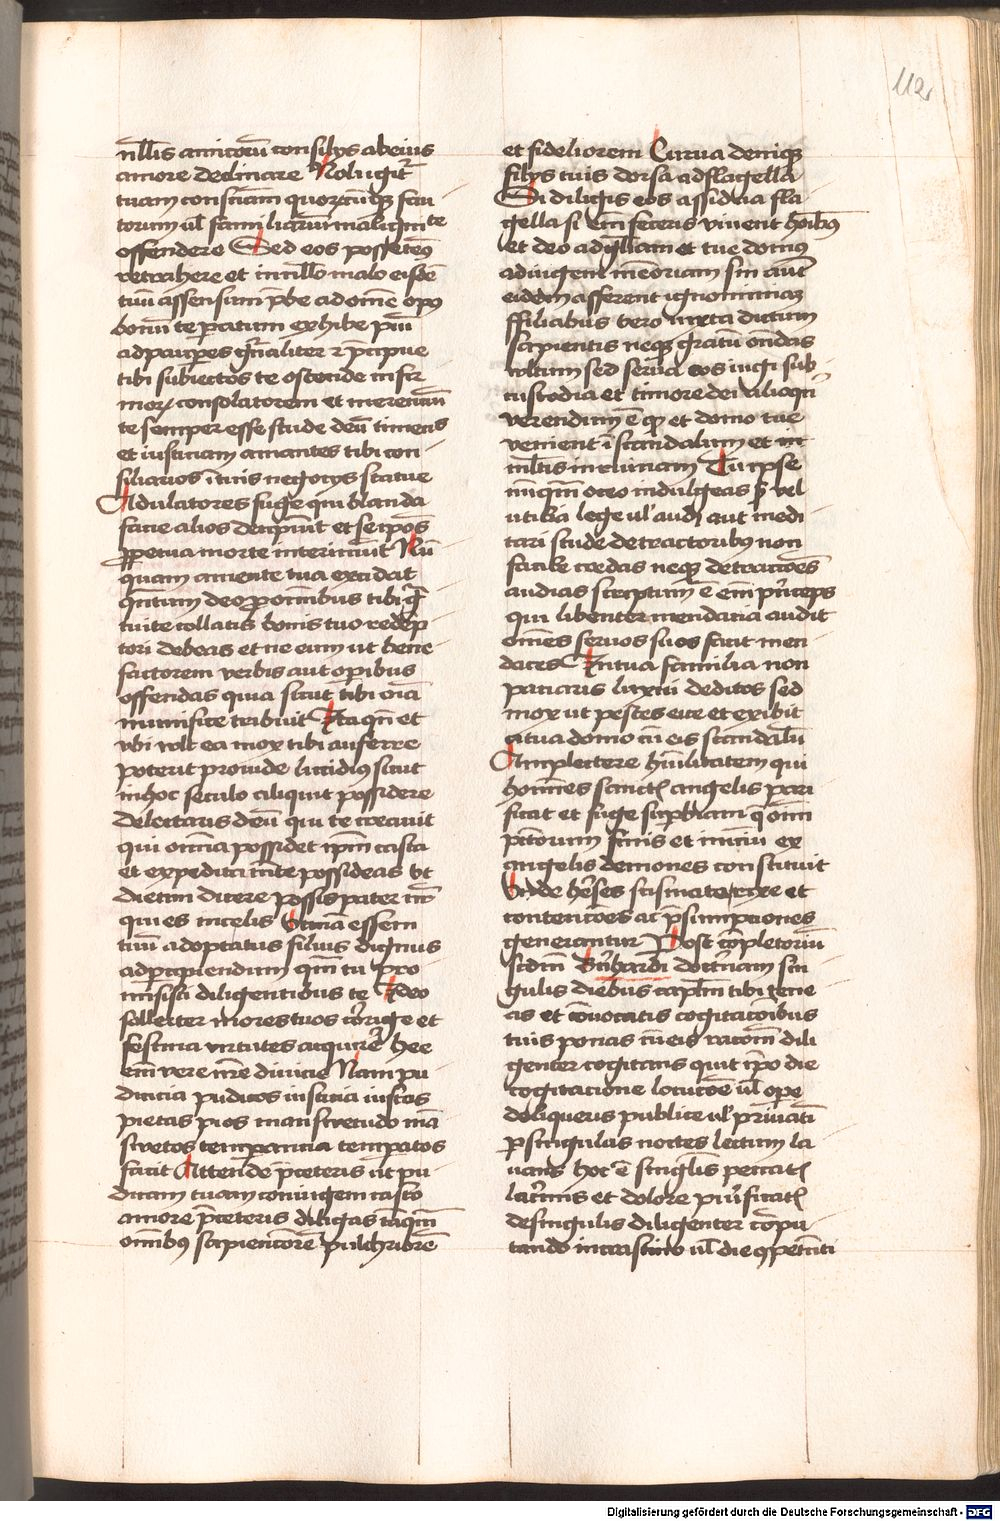 112
nllis amicorū consilijs ab eius
amore declinare Noli igitr̄
tuam consciam̄ quorūcūqꝫ fau
torum ul̄ familiarium maligni te
offendere Sed eos posse tenꝰ
retrahere et in nullo malo eisdē
tuū assensum p̄be ad omē opꝰ
bonū te paratum exhibe piū
ad pauperes gn̄aliter ⁊ p̄cipue
tibi subiectos te ostende infir
morꝫ consolatorem et merentiū
te semper esse stude deū timens
et iusticiam amantes tibi con
siliarios ī tuis negocijs statue
Adulatores fuge qui blanda
facie alios decipiūt et seipōs
ꝑpetua morte interimūt Nū
quam a mente tua excidat
qn̄tum deo pro omībus tibi gr̄a
tuite collatis bonis tuo redēp
tori debeas et ne eum ut bene
factorem verbis aut opibus
offendas quia sicut tibi oīa
munifice tribuit Ita qn̄ et
vbi vult ea mox tibi auferre
poterit proinde lucidius sicut
in hoc seculo aliquit possidere
delectaris deū qui te creauit
qui omnia possidet ip̄m casta
et expedita mēte possideas vt
dicere possis pater nr̄
qui es in celis Vtinā essem
tuū adoptatus filius dignus
ad percipiendum qm̄ tu pro
misisti diligentibus te Ideo
sollerter mores tuos cōrige et
festina virtutes acquirē hee
em̄ vere nr̄e diuicie Nam pu
dicicia pudicos iusticia iustos
pietas pios mansuetudo mā
suetos temperancia tempatos
facit Attende p̄ceteris ut pu
dicam tuam coniugem casto
amore p̄ceteris diligas tāqm̄
omībꝰ sapienciorē pulchriorē
et fideliorem Curua deniqꝫ
filijs tuis dorsa ad flagella
Si diligis eos assidua fla
gella si em̄ feceris viuent hoībꝰ
et deo ad gl̄iam et tue domꝰ
adiugent mēoriam sin autē
eidem afferent ignominiaꝫ
ffiliabus vero iuxta dictum
sapientis neqꝫ gratū ondas
vultum sed serua eos iugi sub
custodia et timore dei alioqn̄
verendum ē qꝫ et domo tue
venient ī scandalum et in
ml̄tis in ruinam Tu ip̄se
nūqm̄ oceo indulgeas sꝫ vel
utilia lege ul̄ audi aut medi
tari stude detractoribus non
facile credas neqꝫ detracciōes
audias scriptum ē em̄ prīceps
qui libenter mendacia audit
omnes seruos suos facit men
daces In tua familia non
paciaris luxui deditos sed
mox ut pestes eice et exibit
a tua domo cū eis scandalū
Amplectere hūilitatem qui
homines sanctꝭ angelis pari
ficat et fuge supbiam q̄ oīm
pctorum finis et iniciū ex
angelis demones constituit
Vnde hēses scismata rixe et
contenciōes ac p̄sumptiones
generantur Post cōpletoriū
scdm̄ Bernhardi doctrinam sin
gulis diebus capl̄m tibi tene
as et cōuocatis cogitacōibus
tuis ponas cū eis racōem dili
genter cogitans quit ip̄o die
cogitacione locucōe ul̄ ope
deliqueris publice ul̄ priuatī
ꝑ singulas noctes lectum la
uans hoc ē singlis peccatꝭ
lacrimis et dolore purificatꝭ
de singulis diligenter cōpu
tando in crastino ul̄ die cōpetenti
Digitalisierung gefördert durch die Deutsche Forschungsgemeinschaft - DFG